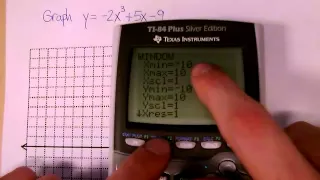 Graph y=-2x³+5x-9
TI-84 Plus Silver Edition
TEXAS INSTRUMENTS
WINDOW
Xmin=-10
Xmax=10
Xscl=1
Ymin=-10
Ymax=10
Yscl=1
↓Xres=1